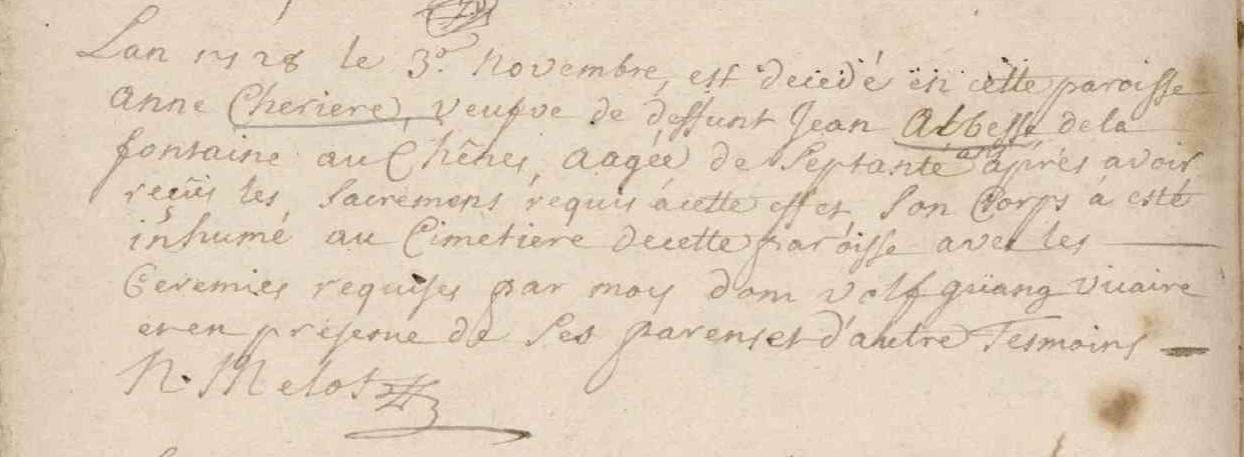 Lan 1728 le 3e. novembre, est decedé en cette paroisse
anne Cheriere, veufve de deffunt Jean Albesse dela
fontaine au Chênes, aagée de septante ans après avoir
reçûs les sacremens requis àcette effet, son Corps à esté
inhumé au Cimetiere decette paroisse avec les
Ceremies requises par moy dom volfgüang vicaire
et en presence de ses parens et d'autre Tesmoins
N. Melot